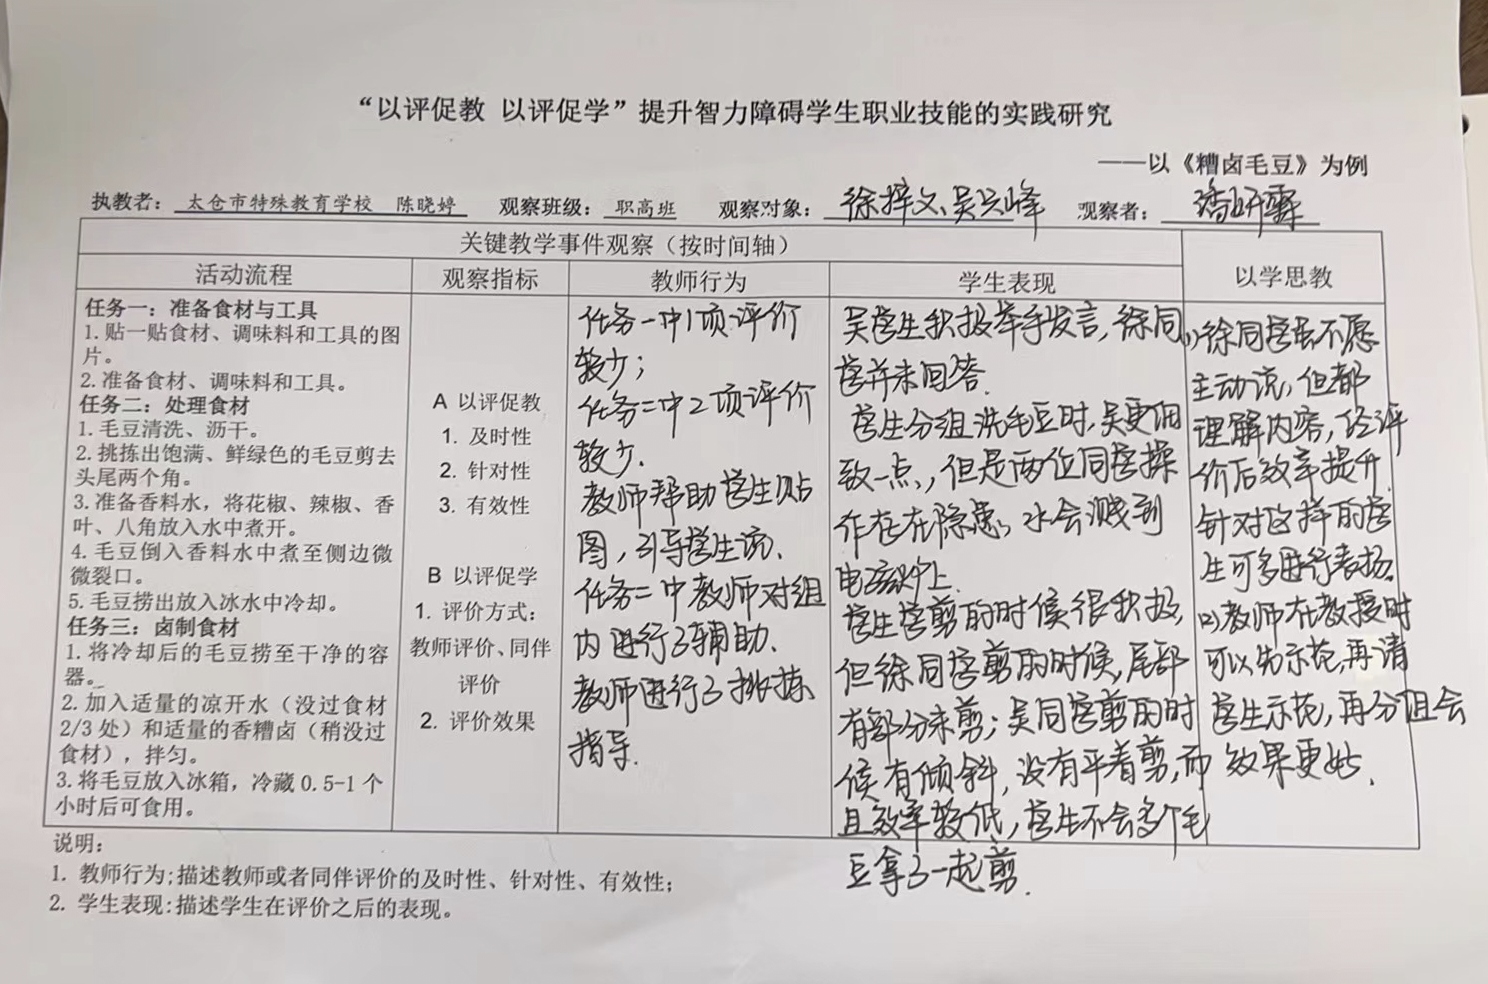 “以评促教 以评促学”提升智力障碍学生职业技能的实践研究
——以《糟卤毛豆》为例
执教者：太仓市特殊教育学校 陈晓婷 观察班级：职高班 观察对象：徐梓文、吴兴峰 观察者：潘妍霏
关键教学事件观察（按时间轴）
以学思教
活动流程
观察指标
教师行为
学生表现
任务一：准备食材与工具
1.贴一贴食材、调味料和工具的图
片。
2.准备食材、调味料和工具。
任务二：处理食材
1.毛豆清洗、沥干。
2.挑拣出饱满、鲜绿色的毛豆剪去
头尾两个角。
3.准备香料水，将花椒、辣椒、香
叶、八角放入水中煮开。
4.毛豆倒入香料水中煮至侧边微
微裂口。
5.毛豆捞出放入冰水中冷却。
任务三：卤制食材
1.将冷却后的毛豆捞至干净的容
器。
2.加入适量的凉开水（没过食材
2/3 处）和适量的香糟卤（稍没过
食材），拌匀。
3.将毛豆放入冰箱，冷藏 0.5-1 个
小时后可食用。
A 以评促教
1. 及时性
2. 针对性
3. 有效性
B 以评促学
1. 评价方式：
教师评价、同伴
评价
2. 评价效果
任务一中1项评价
较少；
任务二中2项评价
较少.
教师帮助学生贴
图，引导学生说.
任务二中教师对组
内进行了辅助.
教师进行了挑拣
指导.
吴学生积极举手发言，徐同
学并未回答.
学生分组洗毛豆时，吴更细
致一点，但是两位同学操
作存在隐患，水会溅到
电磁炉上.
学生学剪的时候很积极，
但徐同学剪的时候，尾部
有部分未剪；吴同学剪的时
候有倾斜，没有平着剪，而
且效率较低，学生不会多个毛
豆拿了一起剪.
(1)徐同学虽不愿
主动说，但都
理解内容，经评
价后效率提升.
针对这样的学
生可多进行表扬.
(2)教师在教授时
可以先示范，再请
学生示范，再分组会
效果更好.
说明：
1. 教师行为；描述教师或者同伴评价的及时性、针对性、有效性；
2. 学生表现：描述学生在评价之后的表现。